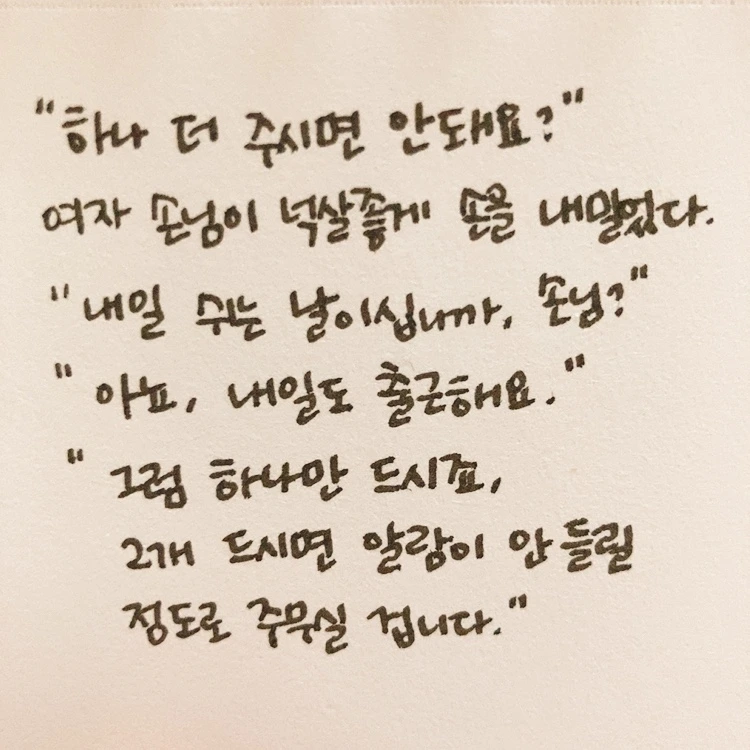 "하나 더 주시면 안돼요?"
여자 손님이 넉살좋게 손을 내밀었다.
"내일 쉬는 날이십니까, 손님?"
"아뇨, 내일도 출근해요."
"그럼 하나만 드시죠,
2개 드시면 알람이 안 들릴
정도로 주무실 겁니다."